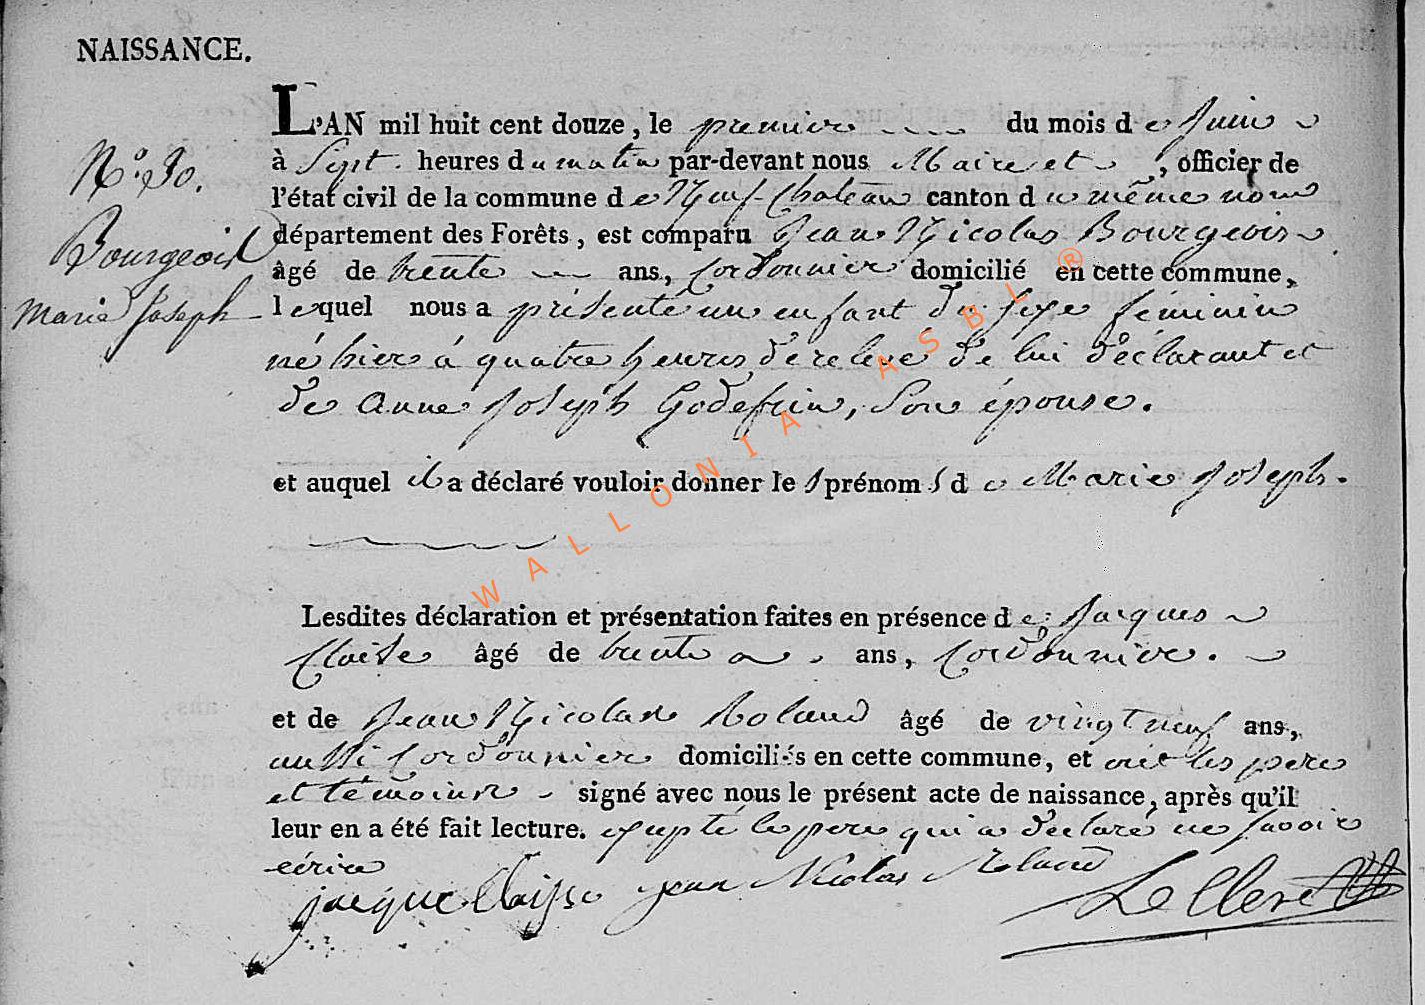 NAISSANCE.
L'AN mil huit cent douze, le premier du mois de Juin
à Sept heures du matin par-devant nous Maire et , officier de
N.o 30.
l'état civil de la commune de Neuf-Chateau canton du même nom
Bourgeois
département des Forêts, est comparu Jean Nicolas Bourgeois
âgé de trente ans, Cordonnier domicilié en cette commune,
Marie Joseph
lequel nous a présenté un enfant du sexe féminin
né hier à quatre heures de relevé de lui déclarant et
de Anne Joseph Godefrin, Son épouse.
et auquel il a déclaré vouloir donner les prénoms de Marie Joseph.
Lesdites déclaration et présentation faites en présence de Jacques
âgé de trente ans, Cordonnier.
et de Jean Nicolas Roland âgé de vingt neuf ans,
aussi Cordonnier domiciliés en cette commune, et ont les pere
et témoins signé avec nous le présent acte de naissance, après qu'il
leur en a été fait lecture. excepté le pere qui a déclaré ne savoir
ecrire
jacque Claisse jean Nicolas Roland LeClerc
WALLONIA ASBL ®